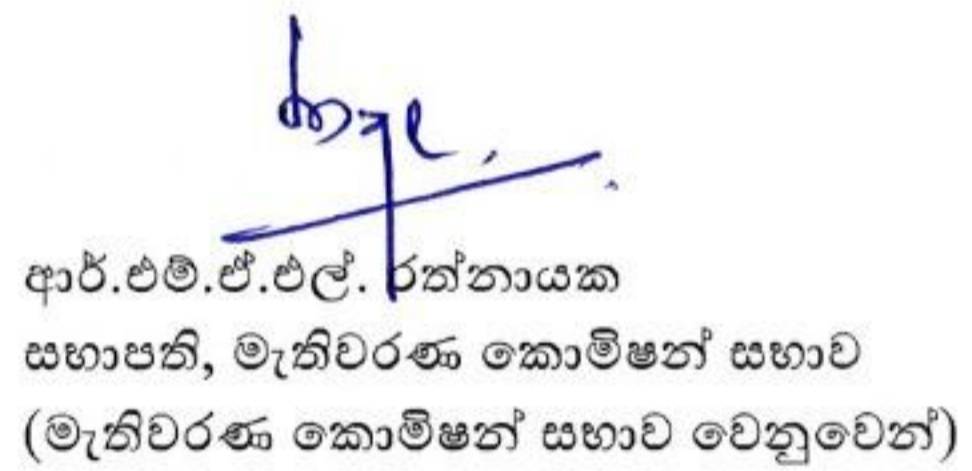 ආර්.එම්.ඒ.එල්. රත්නායක
සභාපති, මැතිවරණ කොමිෂන් සභාව
(මැතිවරණ කොමිෂන් සභාව වෙනුවෙන්)